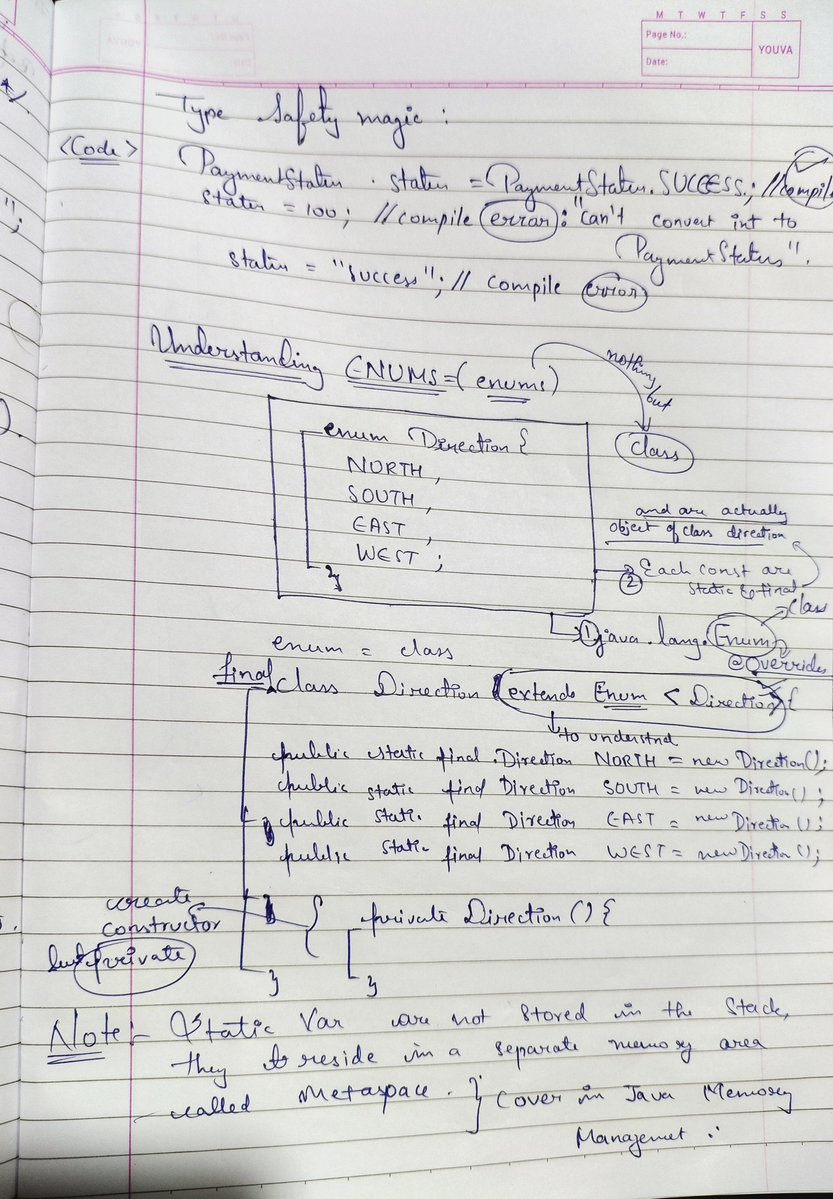 M T W T F S S
Page No.:
Date:
YOUVA
Type Safety magic :
<Code>
PaymentStatus . status = PaymentStatus.SUCCESS.; //compile
status = 100; //compile error: "can't convert int to
PaymentStatus".
status = "success"; // compile error
Understanding ENUMS=(enums)
nothing but
class
enum Direction {
NORTH ,
SOUTH ,
EAST ,
WEST ;
}
and are actually
object of class direction
② Each const are
static & final
① java.lang.Enum
class
@Overrides
enum = class
final class Direction extends Enum < Direction> {
to understnd
public static final .Direction NORTH = new Direction();
public static final Direction SOUTH = new Direction();
public static final Direction EAST = new Direction();
public static final Direction WEST = new Direction();
create
constructor
but private
private Direction () {
}
}
Note:- Static Var are not stored in the Stack,
they reside in a separate memory area
called Metaspace. } Cover in Java Memory
Managemet